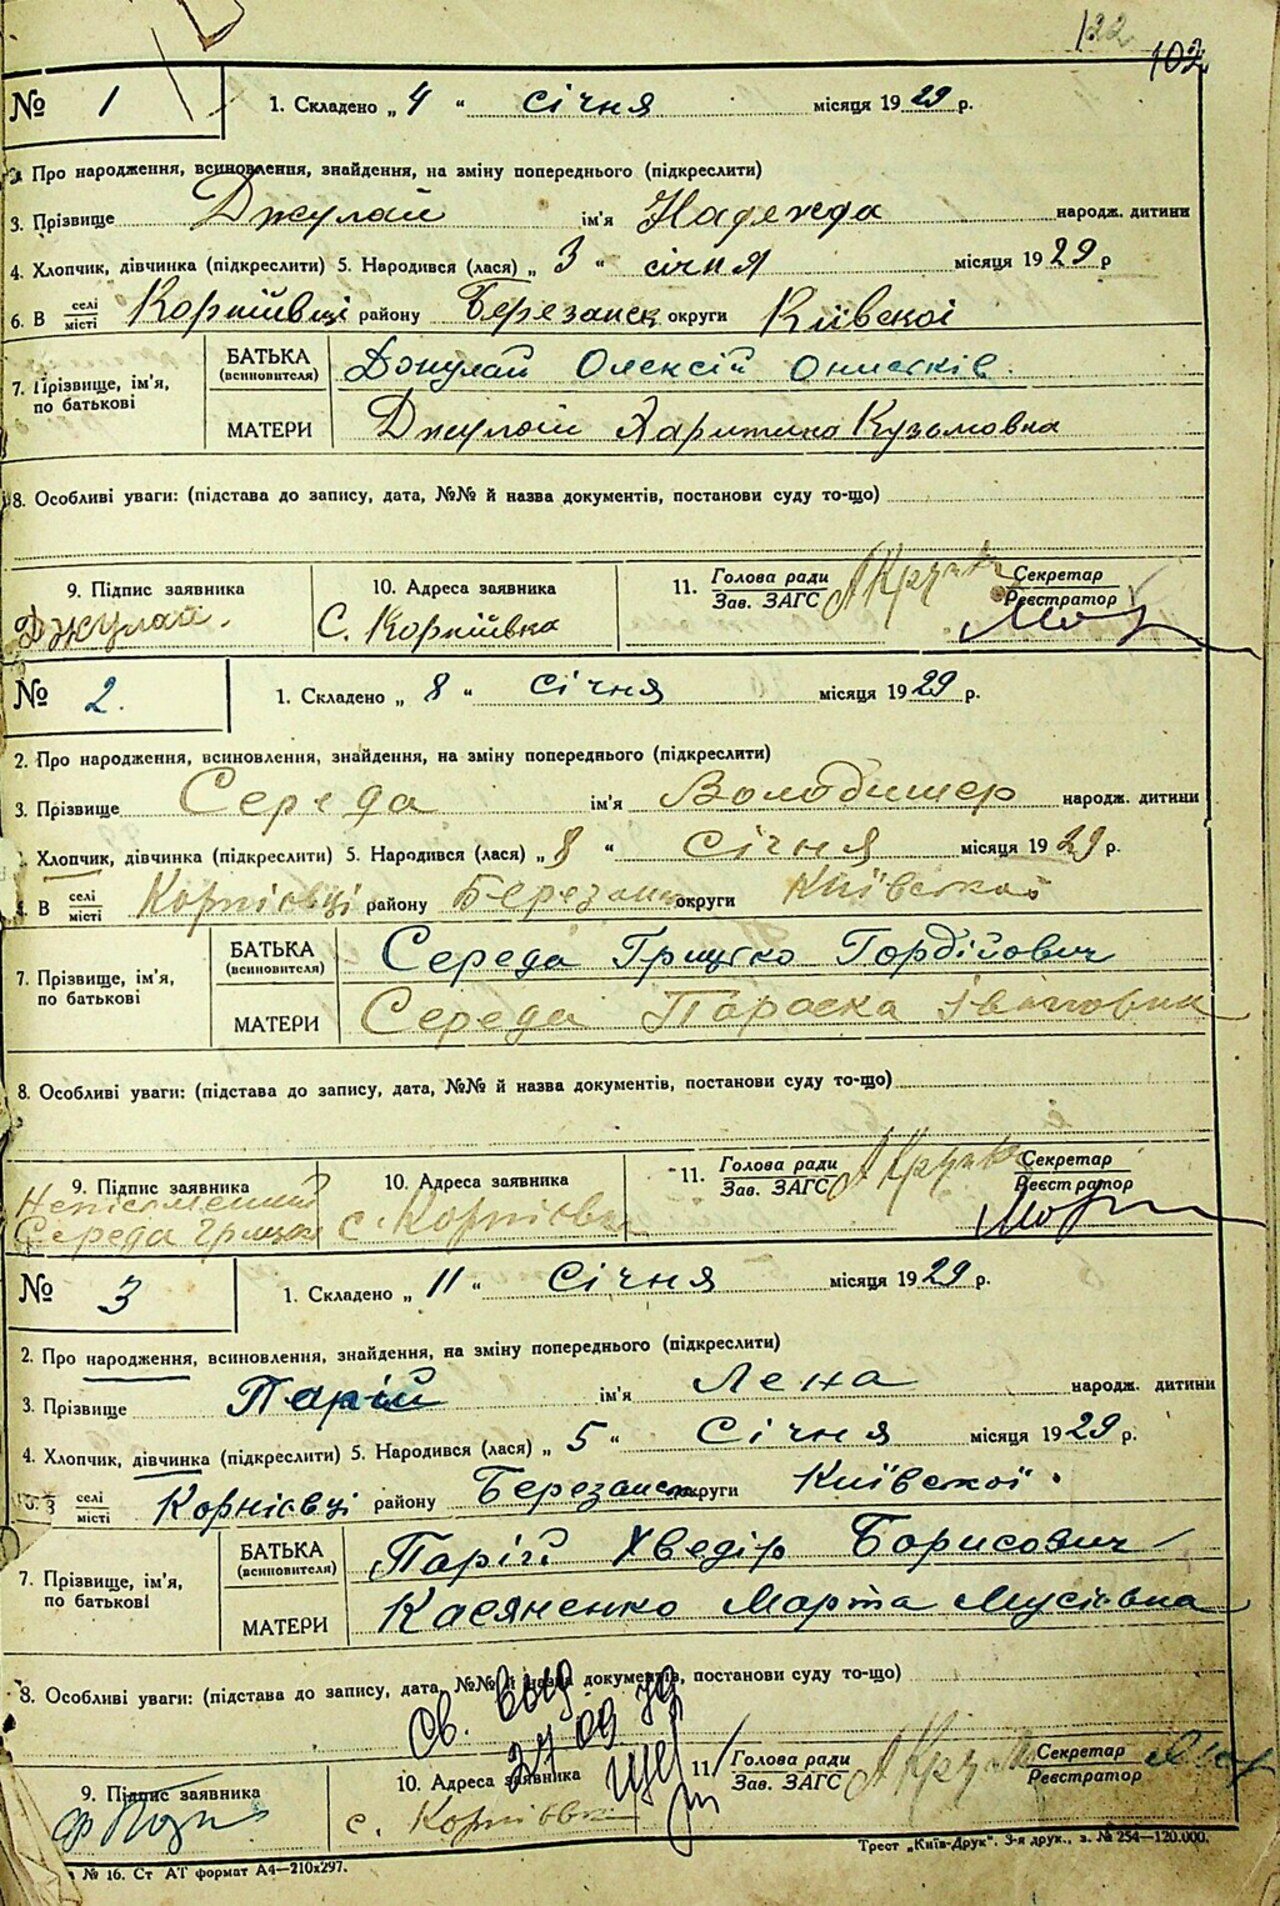 122
102
№ 1
1. Складено „ 4 “ січня місяця 1929 р.
2. Про народження, всиновлення, знайдення, на зміну попереднього (підкреслити)
3. Прізвище Джулай ім'я Надежда народж. дитини
4. Хлопчик, дівчинка (підкреслити) 5. Народився (лася) „ 3 “ січня місяця 1929 р
6. В селі/місті Корніївці району Березанск округи Київскоі
7. Прізвище, ім'я, по батькові
БАТЬКА (всиновителя) Джулай Олексій
МАТЕРИ Джулай Харитина Кузьмовна
8. Особливі уваги: (підстава до запису, дата, №№ й назва документів, постанови суду то-що)
9. Підпис заявника 10. Адреса заявника 11. Голова ради/Зав. ЗАГС Секретар/Реєстратор
Джулай. С. Корніївка
№ 2.
1. Складено „ 8 “ січня місяця 1929 р.
2. Про народження, всиновлення, знайдення, на зміну попереднього (підкреслити)
3. Прізвище Середа ім'я Володимер народж. дитини
4. Хлопчик, дівчинка (підкреслити) 5. Народився (лася) „ 8 “ січня місяця 1929 р.
6. В селі/місті Корнієвці району Березанск округи Київскоі
7. Прізвище, ім'я, по батькові
БАТЬКА (всиновителя) Середа Грицько Гордійович
МАТЕРИ Середа Параска Івановна
8. Особливі уваги: (підстава до запису, дата, №№ й назва документів, постанови суду то-що)
9. Підпис заявника 10. Адреса заявника 11. Голова ради/Зав. ЗАГС Секретар/Реєстратор
Неписменний
Середа Грицко с. Корнієвка
№ 3
1. Складено „ 11 “ Січня місяця 1929 р.
2. Про народження, всиновлення, знайдення, на зміну попереднього (підкреслити)
3. Прізвище Парій ім'я Лена народж. дитини
4. Хлопчик, дівчинка (підкреслити) 5. Народився (лася) „ 5 “ Січня місяця 1929 р.
6. В селі/місті Корнієвці району Березанск округи Київскої
7. Прізвище, ім'я, по батькові
БАТЬКА (всиновителя) Парій Хведір Борисович
МАТЕРИ Касяненко Марта Мусієвна
8. Особливі уваги: (підстава до запису, дата, №№ й назва документів, постанови суду то-що)
9. Підпис заявника 10. Адреса заявника 11. Голова ради/Зав. ЗАГС Секретар/Реєстратор
с. Корнієвка
№ 16. Ст АТ формат А4—210х297.
Трест „Київ-Друк". 3-я друк., з. № 254—120.000.